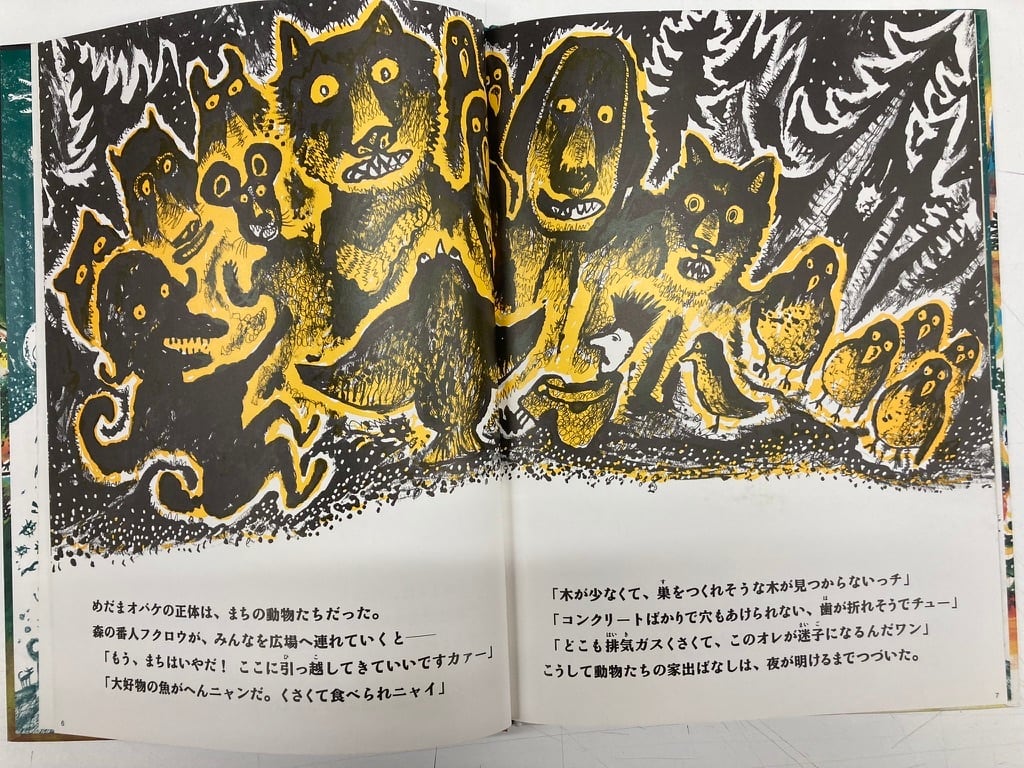 めだまオバケの正体は、まちの動物たちだった。
森の番人フクロウが、みんなを広場へ連れていくと──
「もう、まちはいやだ！ ここに引っ越してきていいですカァー」
「大好物の魚がへんニャンだ。くさくて食べられニャイ」
6
「木が少なくて、巣をつくれそうな木が見つからないっチ」
「コンクリートばかりで穴もあけられない、歯が折れそうでチュー」
「どこも排気ガスくさくて、このオレが迷子になるんだワン」
こうして動物たちの家出ばなしは、夜が明けるまでつづいた。
7